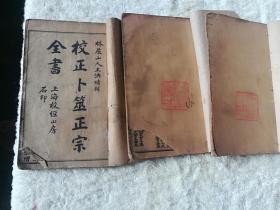 林屋山人王洪緒輯
校正卜筮正宗
全書
上海校經山房
石印